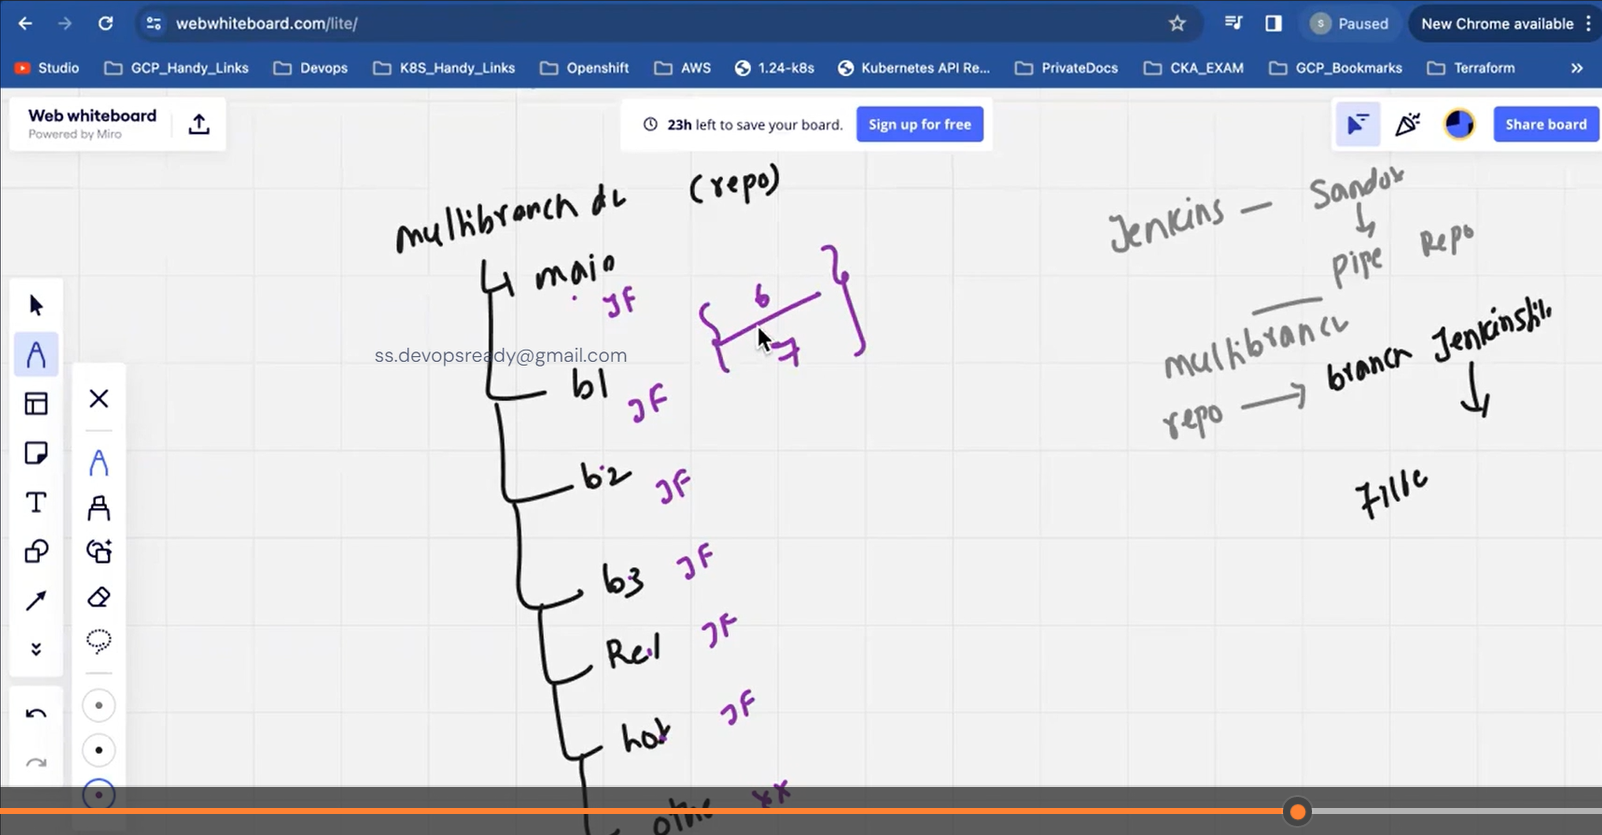 webwhiteboard.com/lite/
S Paused
New Chrome available
Studio GCP_Handy_Links Devops K8S_Handy_Links Openshift AWS 1.24-k8s Kubernetes API Re... PrivateDocs CKA_EXAM GCP_Bookmarks Terraform »
Web whiteboard
Powered by Miro
23h left to save your board. Sign up for free
Share board
multibranch (repo)
main
JF
6
7
ss.devopsready@gmail.com
b1 JF
b2 JF
b3 JF
Rel JF
hot JF
xx
Jenkins —
pipe Repo
multibranch
repo → branch
T